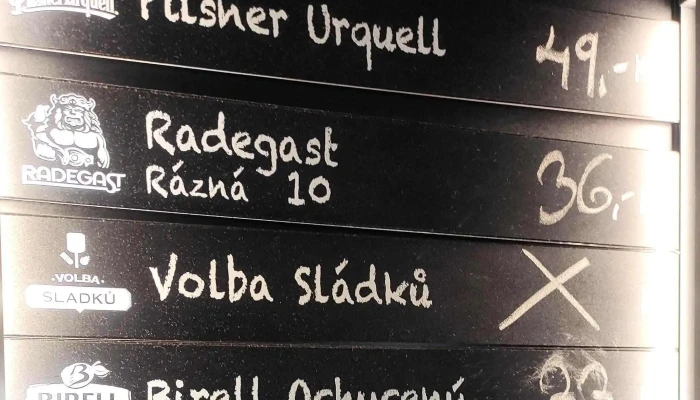 Pilsner Urquell
Pilsner Urquell 49,-
RADEGAST
Radegast
Rázná 10
36,-
VOLBA
SLADKŮ
Volba Sládků
X
BIRELL
Birell Ochucený